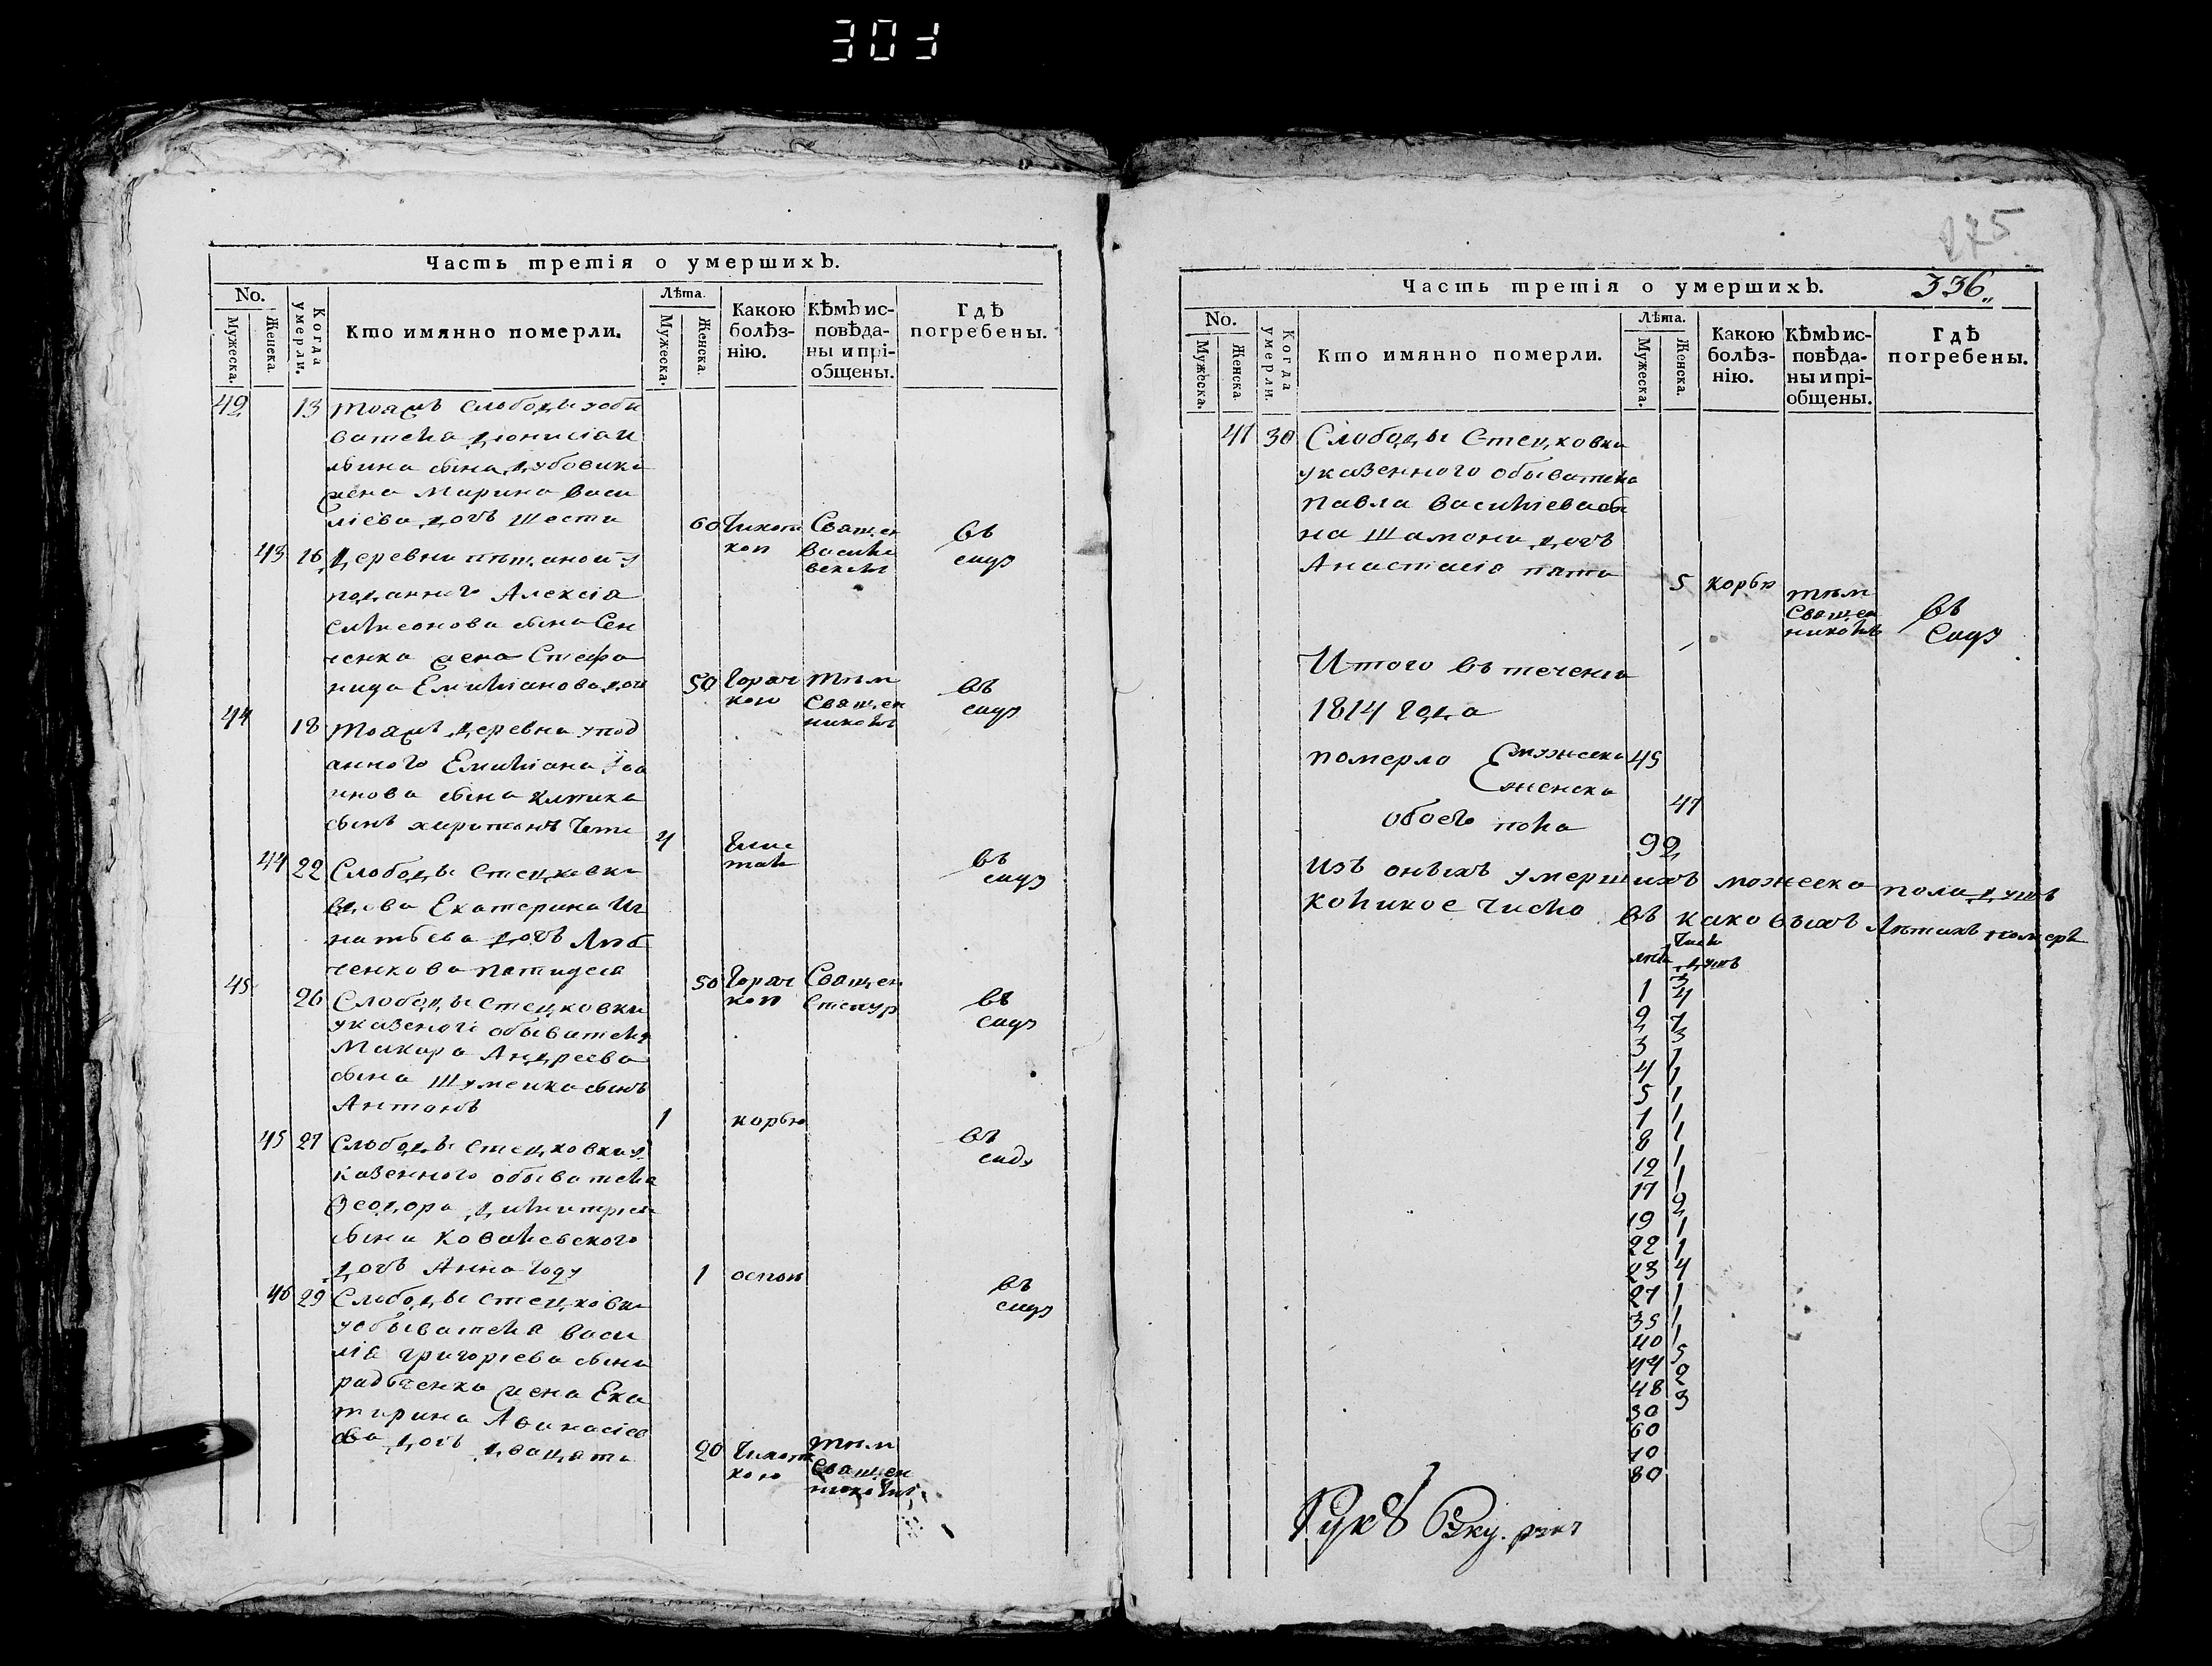 303
Часть третія о умершихъ.
No.
Мужеска.
Женска.
Когда умерли.
Кто имянно померли.
Лѣта.
Мужеска.
Женска.
Какою болѣз-
нію.
Кѣмъ ис-
повѣда-
ны и прі-
общены.
Гдѣ
погребены.
42 13 тояжъ слободы уоби
вателя Діонисія И
льина сына Дубовика
жена Марина Васи
лієва дочь шеста
60 Свящ.ен
кою Василі
въ
саду
43 16 Деревни
подданного Алексія
Симеонова сына Сен
ченка жена Стефа
нида Емиліанова доч
50 Горяч
кою
тѣм
Священ
никомъ
въ
саду
44 18 тояжъ деревни упод
анного Емиліана Їоа
нова сына
сынъ Харитонъ чети
4
въ
саду
44 22 Слободы Стецковки
вдова Екатерина Иг
натьева дочь
ченкова патидеся
50 Горяч
кою
Священ
въ
саду
45 26 Слободы Стецковки
указеного обывателя
Макара Андреева
сына Шумейка сынъ
Антонъ
1 корью
въ
саду
45 27 Слободы Стецковки у
казенного обывателя
Ѳеодора Димитріев
сына Ковалевского
дочь Анна году
1 оспою
въ
саду
46 29 Слободы Стецковки
уобывателя Васи
лія Григорієва сына
радьченка жена Ека
тирина Аѳанасіев
ва дочь двацяти
20
кою
тѣм
Священ
никомъ
въ
175
Часть третія о умершихъ.
336
No.
Мужеска.
Женска.
Когда умерли.
Кто имянно померли.
Лѣта.
Мужеска.
Женска.
Какою болѣз-
нію.
Кѣмъ ис-
повѣда-
ны и прі-
общены.
Гдѣ
погребены.
47 30 Слободы Стецковки
указенного обывателя
Павла Василієва сы
на Шамона дочь
Анастасія пята
5 корью
тѣм
Священ
никомъ
въ
Саду
Итого въ теченіи
1814 года
померло мужеска 45
женска
47
обоего пола
92
Изъ оныхъ умершихъ можеска пола душъ
коликое число въ каковыхъ лѣтахъ померъ
лѣт
число
душъ
3
1 4
2 7
3 3
4 1
5 1
7 1
8 1
12 1
17 1
19 2
22 1
23 1
27 4
35 1
40 1
44 1
48 5
50 2
60 3
70
80